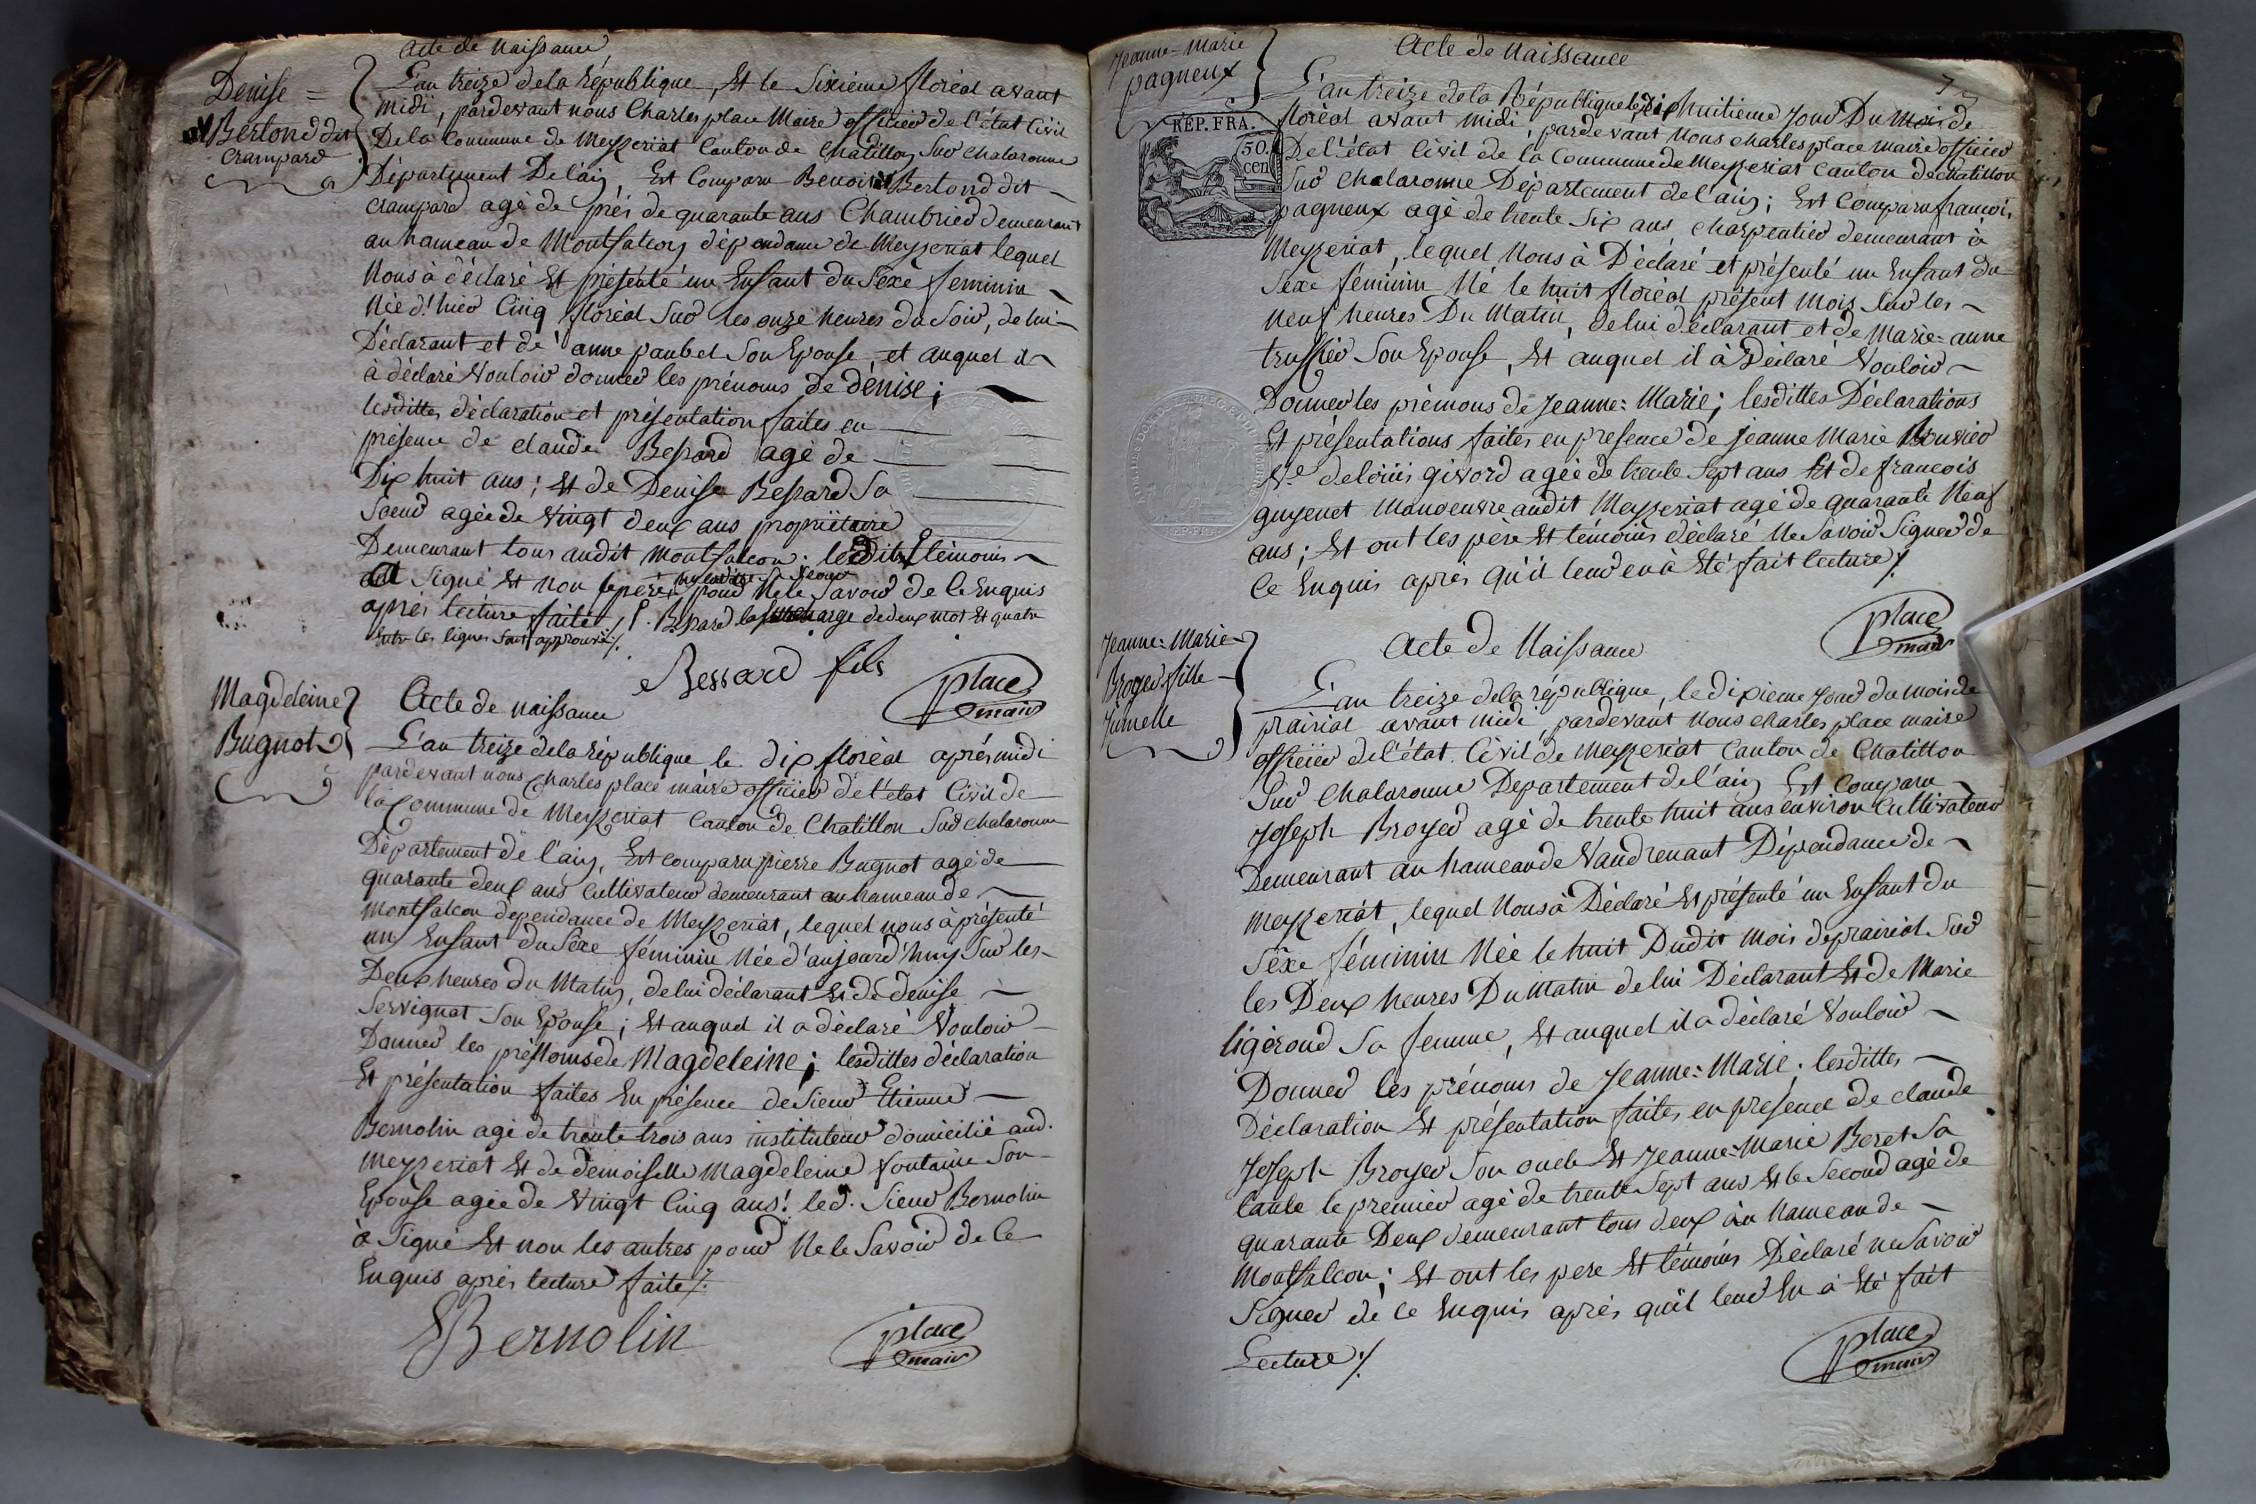 acte de Naissance
Denise =
Bertond dit
Crampard
L'an treize de la République, Et le Sixieme floréal avant
midi, pardevant nous Charles place Maire officier de l'état Civil
De la Commune de Meyzeriat Canton de Chatillon Sur Chalaronne
Département De l'ain, Est Comparu Benoit Bertond dit
Crampard agé de prés de quarante ans Chambrier demeurant
au hameau de Montfalcon dépendance de Meyzeriat lequel
Nous à déclaré Et présenté un Enfant du Séxe feminin
Née d'hier Cinq floréal Sur les onze heures du Soir, de lui
Déclarant et de anne paubel Son Epouse, et auquel il
à déclaré Vouloir donner les prénoms de dénise;
lesdittes déclaration et présentation faites en
présence de claude Bessard agé de
Dix huit ans; Et de Denise Bessard Sa
Soeur agée de Vingt deux ans propriétaire
Demeurant tous audit Montfalcon. ledit témoin
a Signé Et non le pére, ny laditte Sa Soeur pour Ne le Savoir de ce Enquis
aprés lecture faite, P. Bessard la surcharge de deux mot Et quatre
Entre les lignes Sont approuvé ./.
Bessard fils
place
maire
Magdeleine
Bugnot
Acte de naissance
L'an treize de la république le dix floréal aprés midi
pardevant nous Charles place maire officier de l'état Civil de
la Commune de Meyzeriat Canton de Chatillon Sur Chalaronne
Département de l'ain, Est comparu pierre Bugnot agé de
quarante deux ans Cultivateur demeurant au hameau de
Montfalcon dependance de Meyzeriat, lequel nous à présenté
un Enfant du Séxe féminin Née d'aujourd'huy Sur les
Deux heures du Matin, de lui déclarant Et de denise
Servignat Son Epouse; Et auquel il a déclaré Vouloir
Donner les prénoms de Magdeleine; lesdittes déclaration
Et présentation faites En présence de Sieur Etienne
Bernolin agé de trente trois ans instituteur domicilié aud.
Meyzeriat Et de demoiselle Magdeleine fontaine Son
Epouse agée de Vingt Cinq ans! led. Sieur Bernolin
à Signé Et non les autres pour Ne le Savoir de Ce
Enquis aprés lecture faite ./.
Bernolin
place
maire
Jeanne-Marie
pagneux
RÉP. FRA.
50.
cen
Acte de Naissance
L'an treize de la République le dix huitieme Jour Du Mois de
floréal avant midi, pardevant Nous charles place maire officier
De l'état Civil de la Commune de Meyzeriat Canton de Chatillon
Sur Chalaronne Département de l'ain; Est Comparu francois
pagneux agé de trente Six ans charpentier demeurant à
Meyzeriat, lequel Nous à Déclaré et présenté un Enfant du
Séxe féminin Né le huit floréal présent mois Sur les
Neuf heures Du Matin, de lui déclarant et de Marie=anne
Son Epouse, Et auquel il à Déclaré Vouloir
Donner les prémoms de Jeanne=Marie; lesdittes Déclarations
Et présentations faites en presence de jeanne Marie Bouvier
Ve. de loüis givord agée de trente Sept ans Et de francois
guyenet Manoeuvre audit Meyzeriat agé de quarante Neuf
ans; Et ont les pére Et témoins déclaré Ne Savoir Signer de
Ce Enquis aprés qu'il leur en à Eté fait lecture ./.
place
maire
Jeanne=Marie
Broyer fille
Jumelle
Acte de Naissance
L'an treize de la république, le dixieme jour du mois de
prairial avant midi, pardevant nous charles place maire
officier de l'état Civil de Meyzeriat Canton de Chatillon
Sur Chalaronne Departement de l'ain Est Comparu
Joseph Broyer agé de trente huit ans environ Cultivateur
Demeurant au hameau de Vaudrenant Dépendance de
Meyzeriat, lequel Nous à Déclaré Et présenté un Enfant du
Séxe féminin Née le huit Dudit mois de prairial Sur
les Deux heures Du Matin de lui Déclarant Et de Marie
ligérond Sa femme, Et auquel il a déclaré Vouloir
Donner les prénoms de Jeanne=Marie. lesdittes
Déclaration Et présentation faites en présence de claude
Joseph Broyer Son oncle Et Jeanne=Marie Beret Sa
tante le premier agé de trente Sept ans Et le Second agé de
quarante Deux demeurant tous deux au hameau de
Montfalcon; Et ont les pere Et témoins Déclaré ne Savoir
Signer de ce Enquis aprés qu'il leur En à Eté fait
Lecture ./.
place
maire